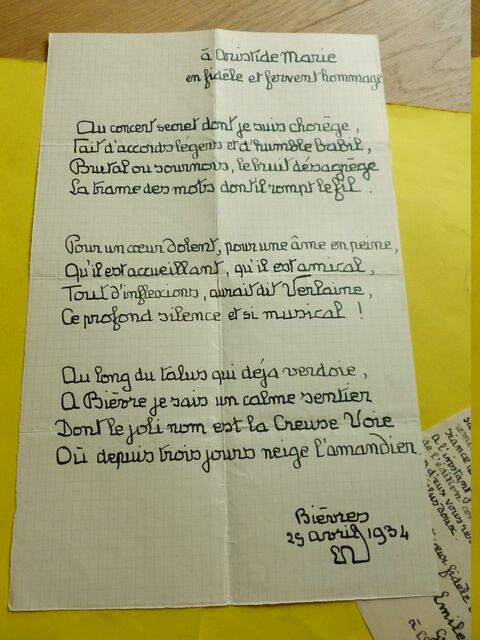 à Aristide Marie
en fidèle et fervent hommage
Au concert secret dont je suis chorège,
Fait d'accords légers et d'humble babil,
Brutal ou sournois, le bruit désagrège
La trame des mots dont il rompt le fil.
Pour un cœur dolent, pour une âme en peine,
Qu'il est accueillant, qu'il est amical,
Tout d'inflexions, aurait dit Verlaine,
Ce profond silence et si musical !
Au long du talus qui déjà verdoie,
A Bièvre je sais un calme sentier
Dont le joli nom est la Creuse Voie
Où depuis trois jours neige l'amandier.
Bièvres
25 avril 1934
à l'instant
de l'édition
d'eux vous
plus doux.
fidèle
Emile